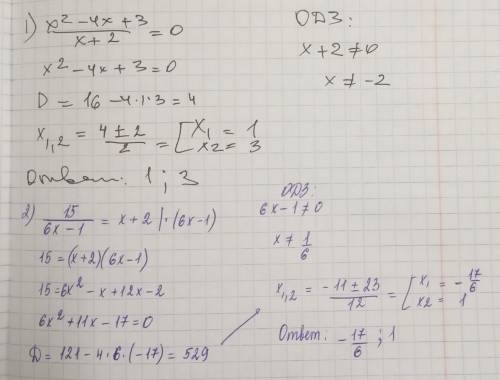 1) (x² - 4x + 3)/(x + 2) = 0
ОДЗ:
x + 2 ≠ 0
x ≠ -2
x² - 4x + 3 = 0
D = 16 - 4·1·3 = 4
x₁,₂ = (4 ± 2)/2 = [x₁ = 1
x2 = 3
Ответ: 1 ; 3
2) 15/(6x - 1) = x + 2 |·(6x - 1)
15 = (x + 2)(6x - 1)
15 = 6x² - x + 12x - 2
6x² + 11x - 17 = 0
D = 121 - 4·6·(-17) = 529
ОДЗ:
6x - 1 ≠ 0
x ≠ 1/6
x₁,₂ = (-11 ± 23)/12 = [x₁ = -17/6
x2 = 1
Ответ: -17/6 ; 1